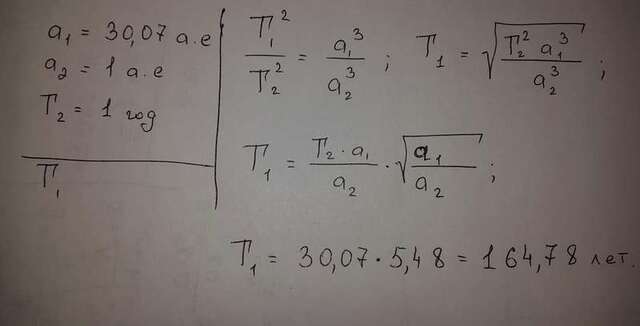 a₁ = 30,07 а.е
a₂ = 1 а.е
T₂ = 1 год
T₁
T₁²/T₂² = a₁³/a₂³ ; T₁ = √(T₂² a₁³/a₂³) ;
T₁ = T₂·a₁/a₂ · √(a₁/a₂) ;
T₁ = 30,07·5,48 = 164,78 лет.